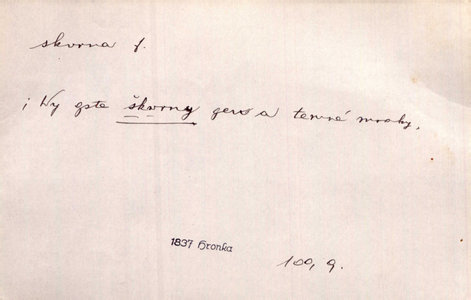 skvrna f.
; Wy gste škvrny gero a temné mraky,
1837 Hronka
100, 9.